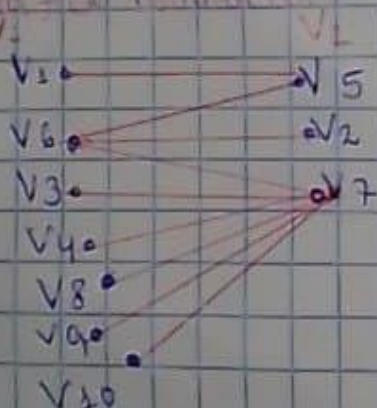 V1 V5
V6 V2
V3 V7
V4
V8
V9
V10